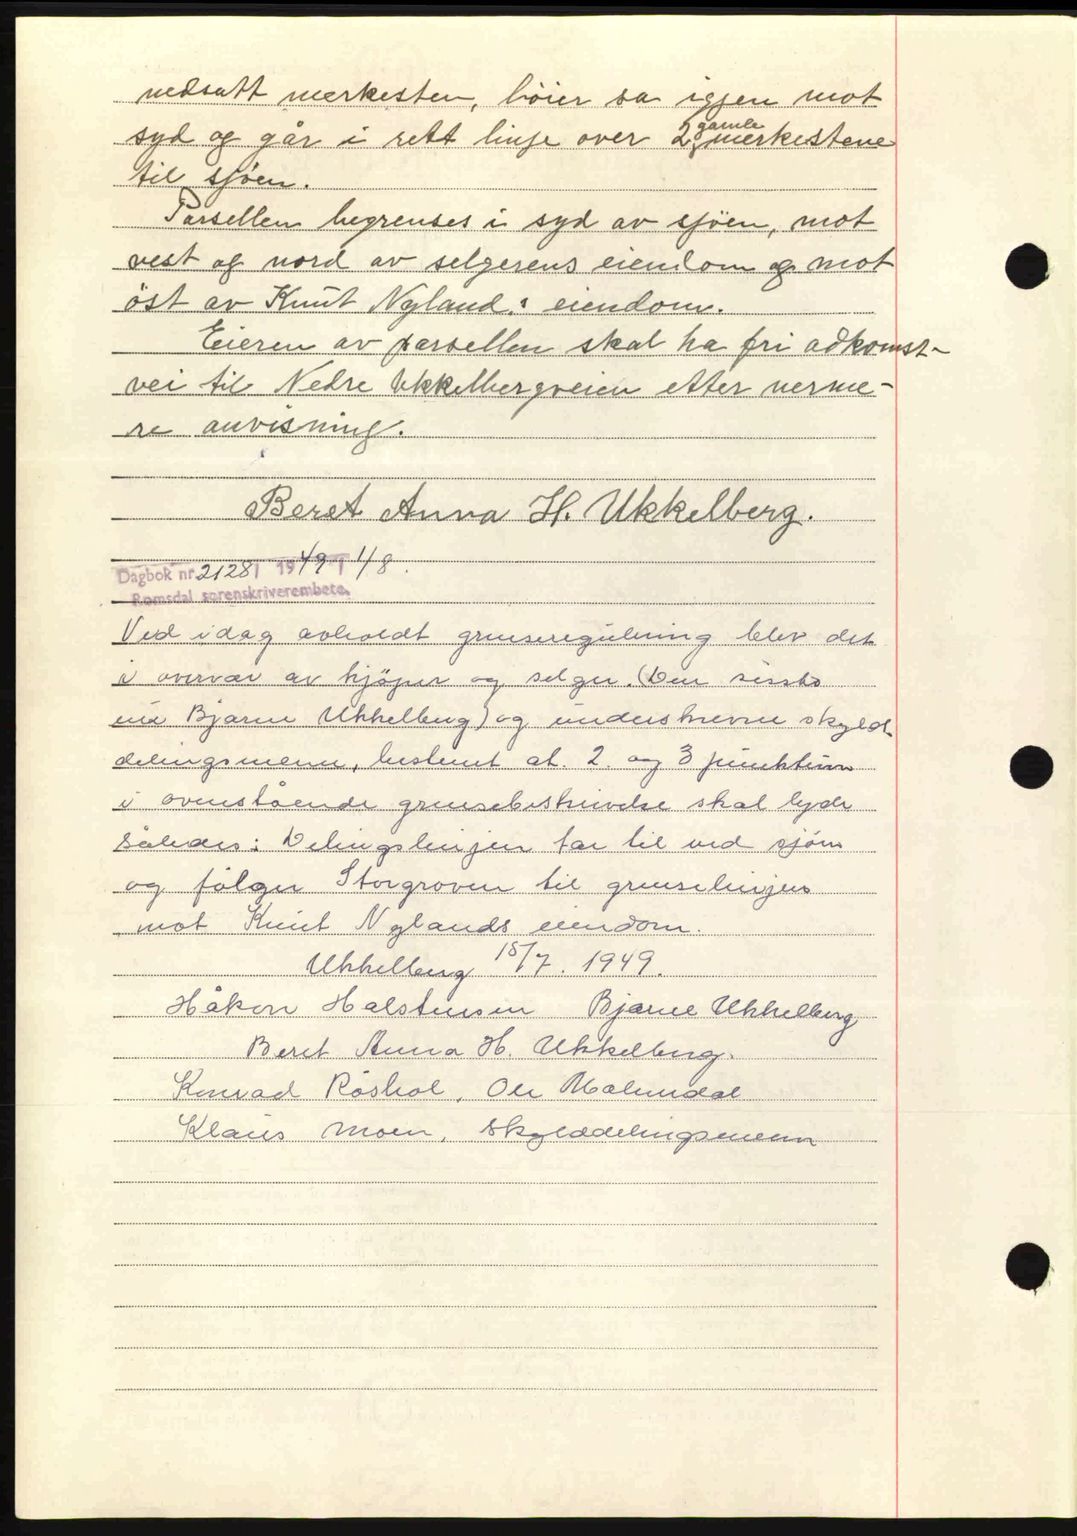 nedsatt merkesten, böier sa igjen mot
syd og går i rett linje over 2 gamle merkestene
til sjöen.
Parsellen begrenses i syd av sjöen, mot
vest og nord av selgerens eiendom og mot
öst av Knut Nylands eiendom.
Eieren av parsellen skal ha fri adkomst-
vei til Nedre Ukkelbergveien etter nerme-
re anvisning.
Beret Anna H. Ukkelberg.
Dagbok nr. 2128 1949 1/8.
Romsdal sorenskriverembete.
Ved idag avholdt grenseregulering blev det
i overvær av kjöper og selger. (Den sisste
Bjarne Ukkelberg) og underskrevne skyld-
delingsmenn, bestemt at. 2. og 3 punktum
i ovenstående grensebeskrivelse skal lyde
således: Delingslinjen tar til ved sjöen
og fölger Storgroven til grenselinjen
mot Knut Nylands eiendom.
Ukkelberg 15/7. 1949.
Håkon Halstensen Bjarne Ukkelberg
Beret Anna H. Ukkelberg.
Konrad Röshol, Ole Malmedal
Klaus Moen, skylddelingsmenn